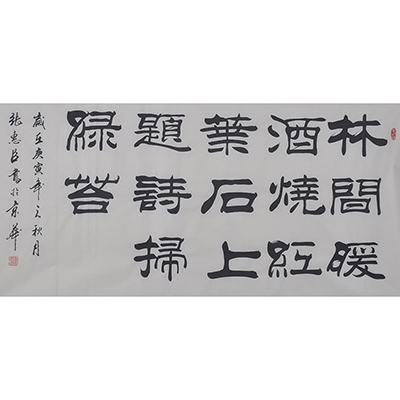 林間暖
酒燒紅
葉石上
題詩掃
緑苔
歲在庚寅年之秋月
張惠臣書於京華